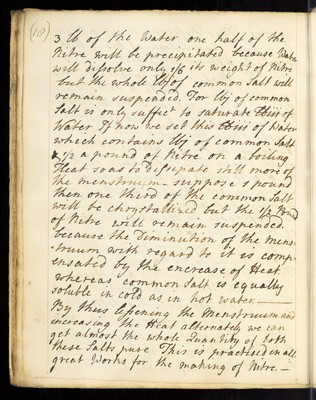 (10)
3 lb of the Water one half of the
Nitre will be precipitated because Water
will dissolve only 1/6 its weight of Nitre
but the whole lbj of common Salt will
remain suspended. For lbj of common
Salt is only suffict to saturate lbiii of
Water If now we set this lbiii of Water
which contains lbj of common Salt
& 1/2 a pound of Nitre on a boiling
Heat so as to Dissipate still more of
the menstruum suppose 1 pound
then one third of the common Salt
will be chrystallized but the 1/2 Pound
of Nitre will remain suspended
because the Diminution of the mens-
-truum with regard to it is comp-
ensated by the encrease of Heat
whereas common Salt is equally
soluble in cold as in hot water. —
By thus lessening the Menstruum and
increasing the Heat alternately we can
get almost the whole Quantity of both
these Salts pure This is practised in all
great Works for the making of Nitre. —